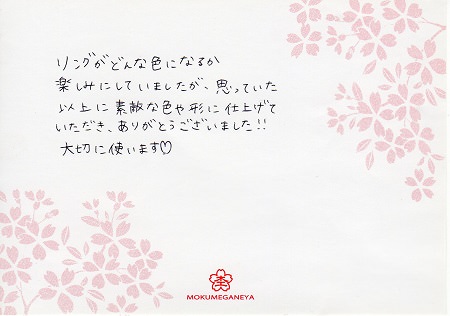 リングがどんな色になるか
楽しみにしていましたが、思っていた
以上に素敵な色や形に仕上げて
いただき、ありがとうございました!!
大切に使います♡
MOKUMEGANEYA